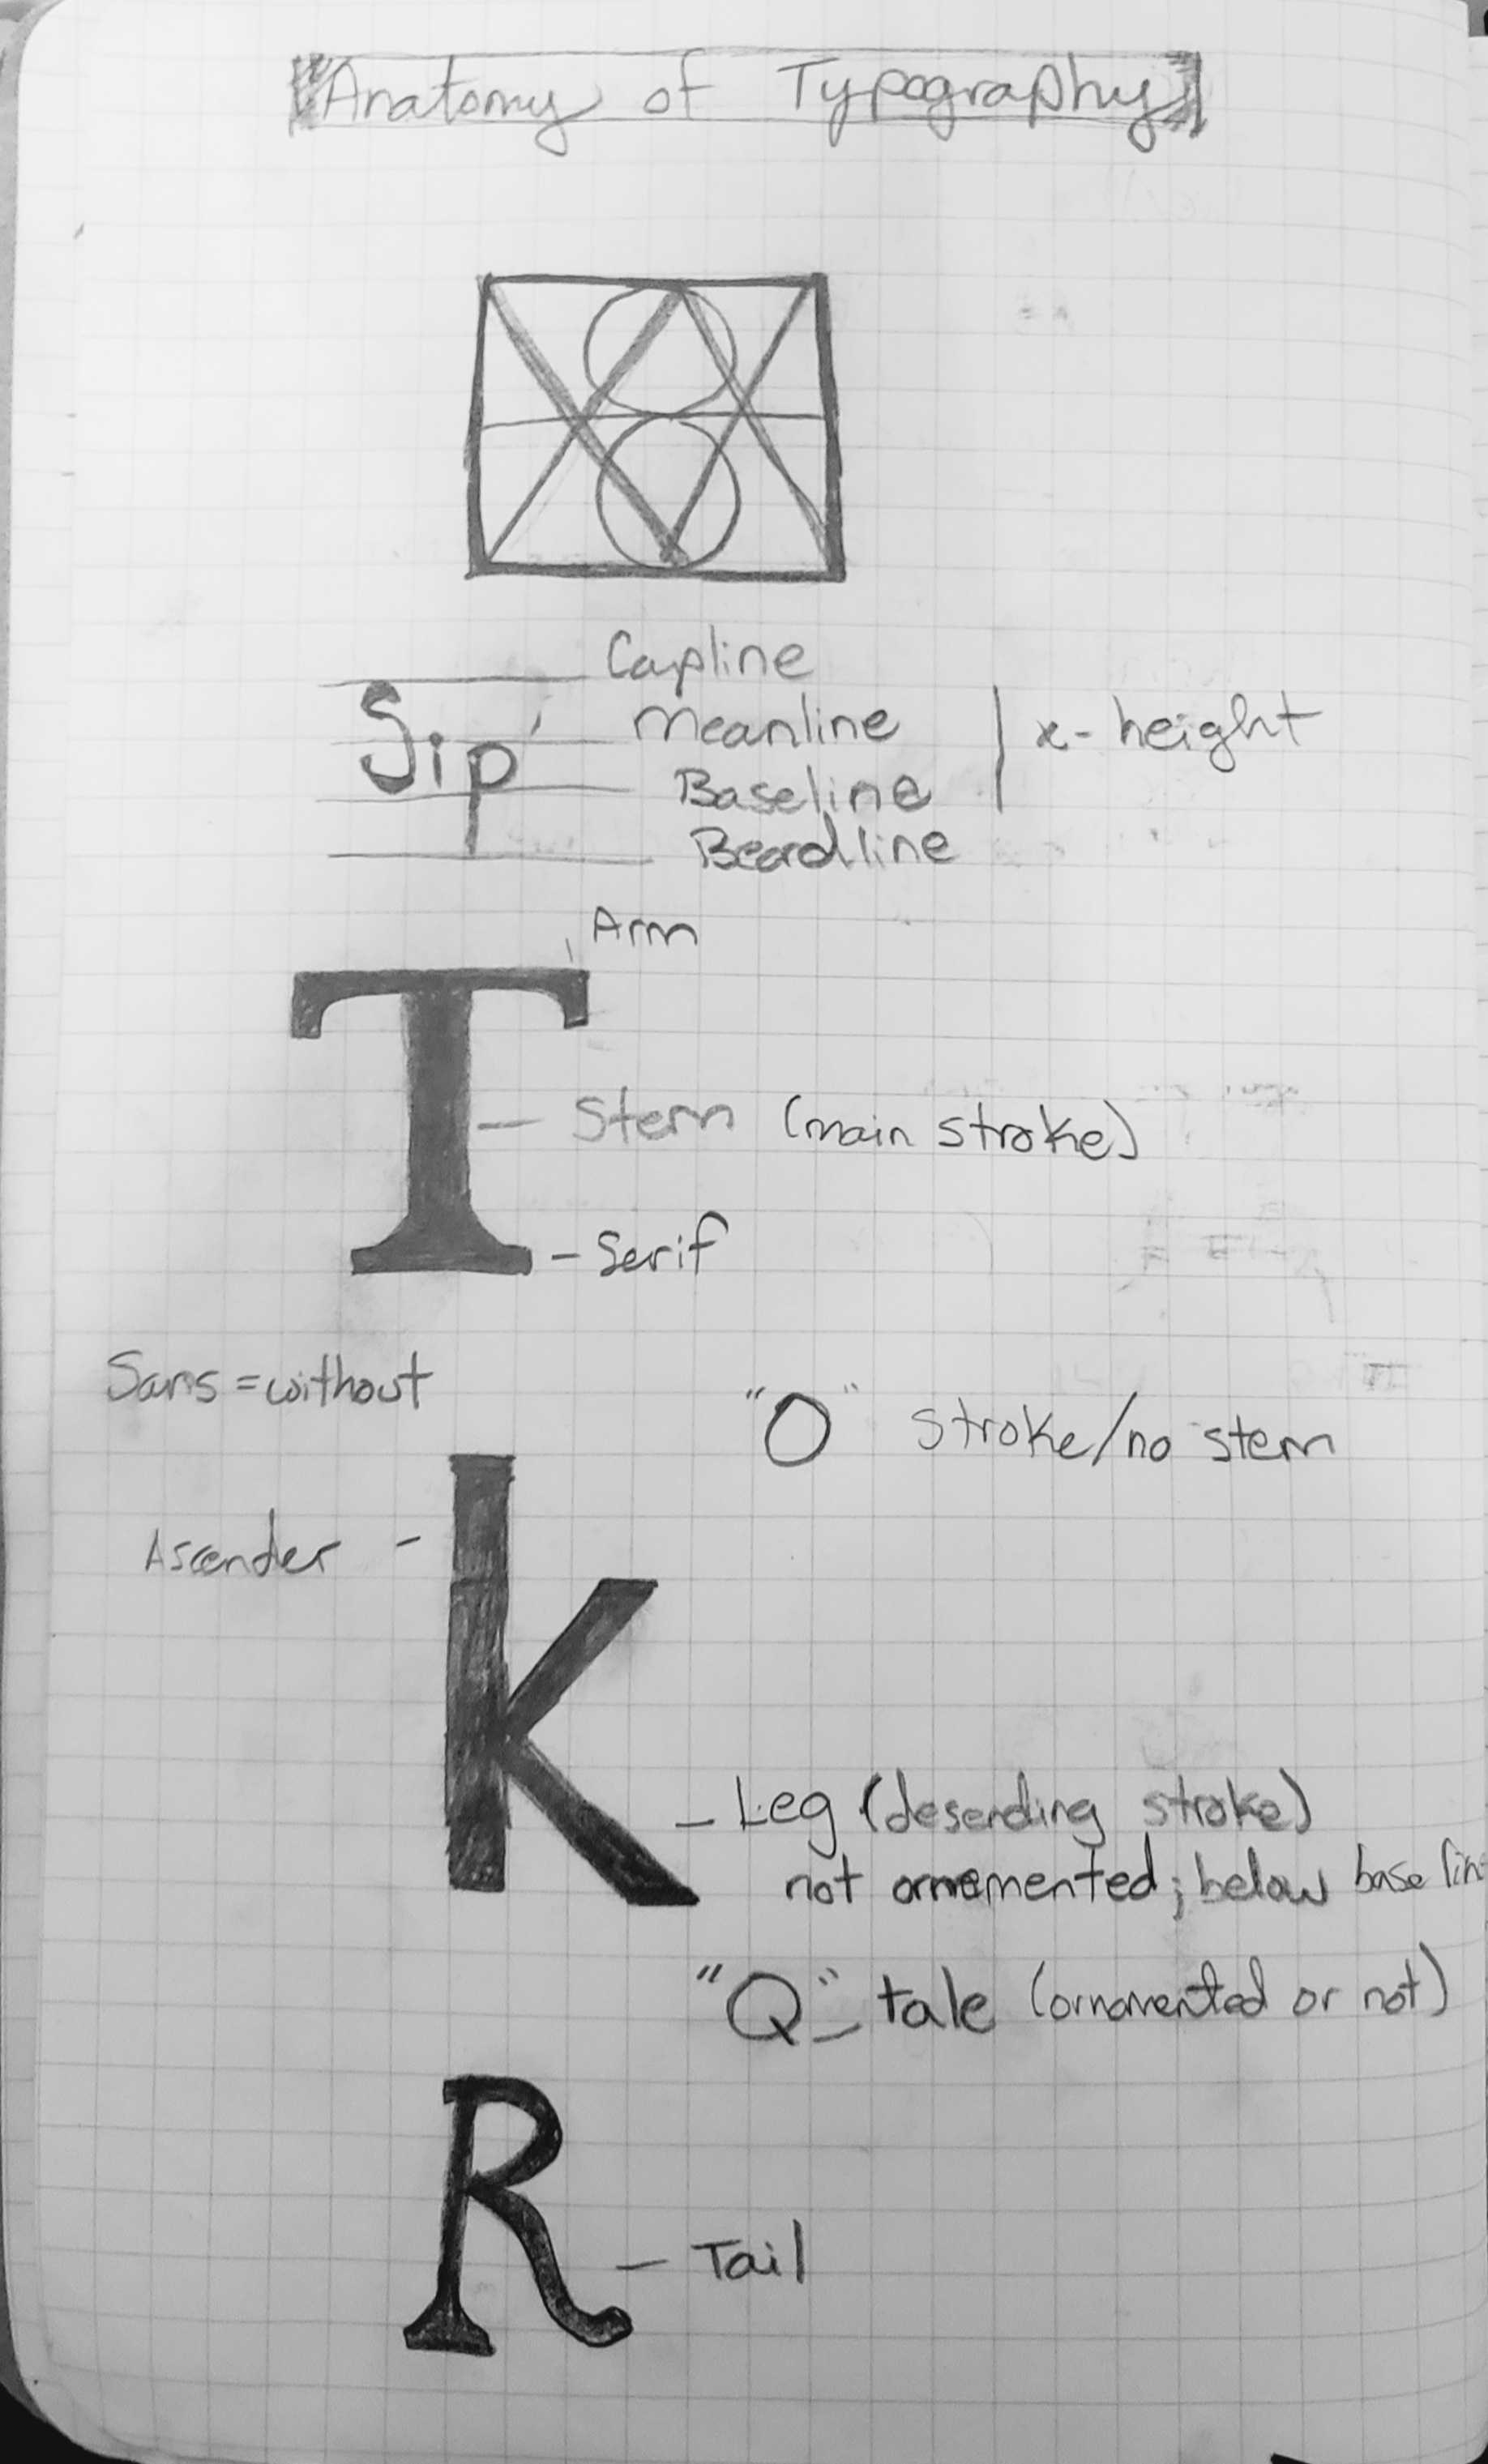 Anatomy of Typography
Capline
Sip
Meanline
x-height
Baseline
Beardline
Arm
T
Stem (main stroke)
Serif
Sans = without
"O" stroke/no stem
Ascender -
k
- Leg (desending stroke)
not ornemented; below base line
"Q" - tale (ornamented or not)
R
- Tail